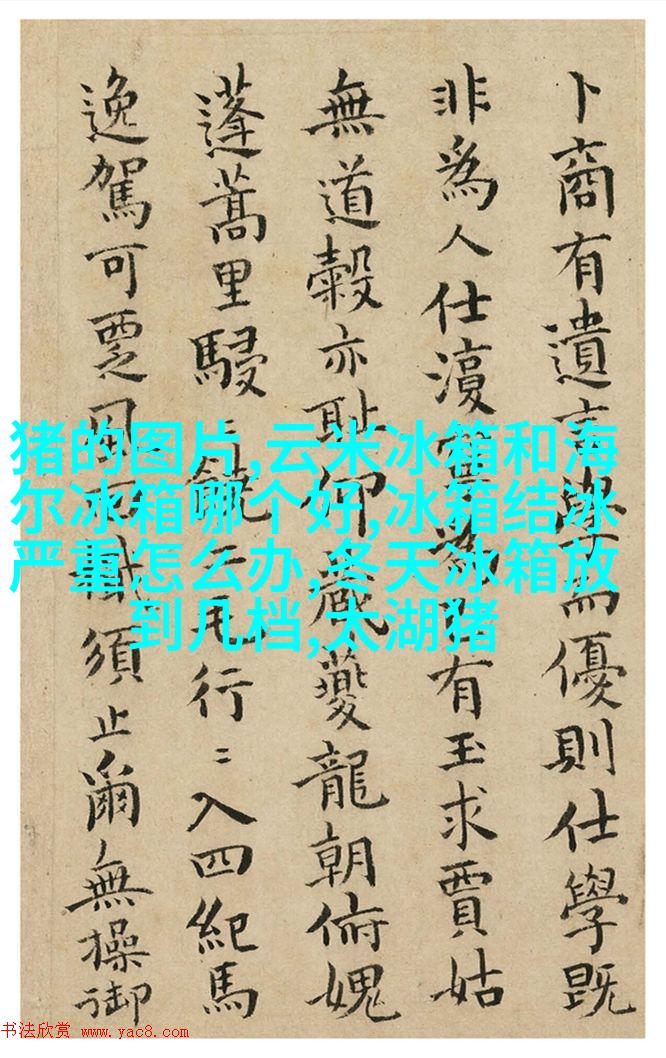 卜商有遺而優則仕學既
非為人仕為有玉求賈姑
無道穀亦恥仰夔龍朝俯媿
蓬蒿里駸〻二毛行〻入四紀馬
逸駕可覂須止爾無操御
猪的图片,云米冰箱和海
尔冰箱哪个好,冰箱结冰
严重怎么办,冬天冰箱放
到几档,太湖猪
书法欣赏 www.yac8.com